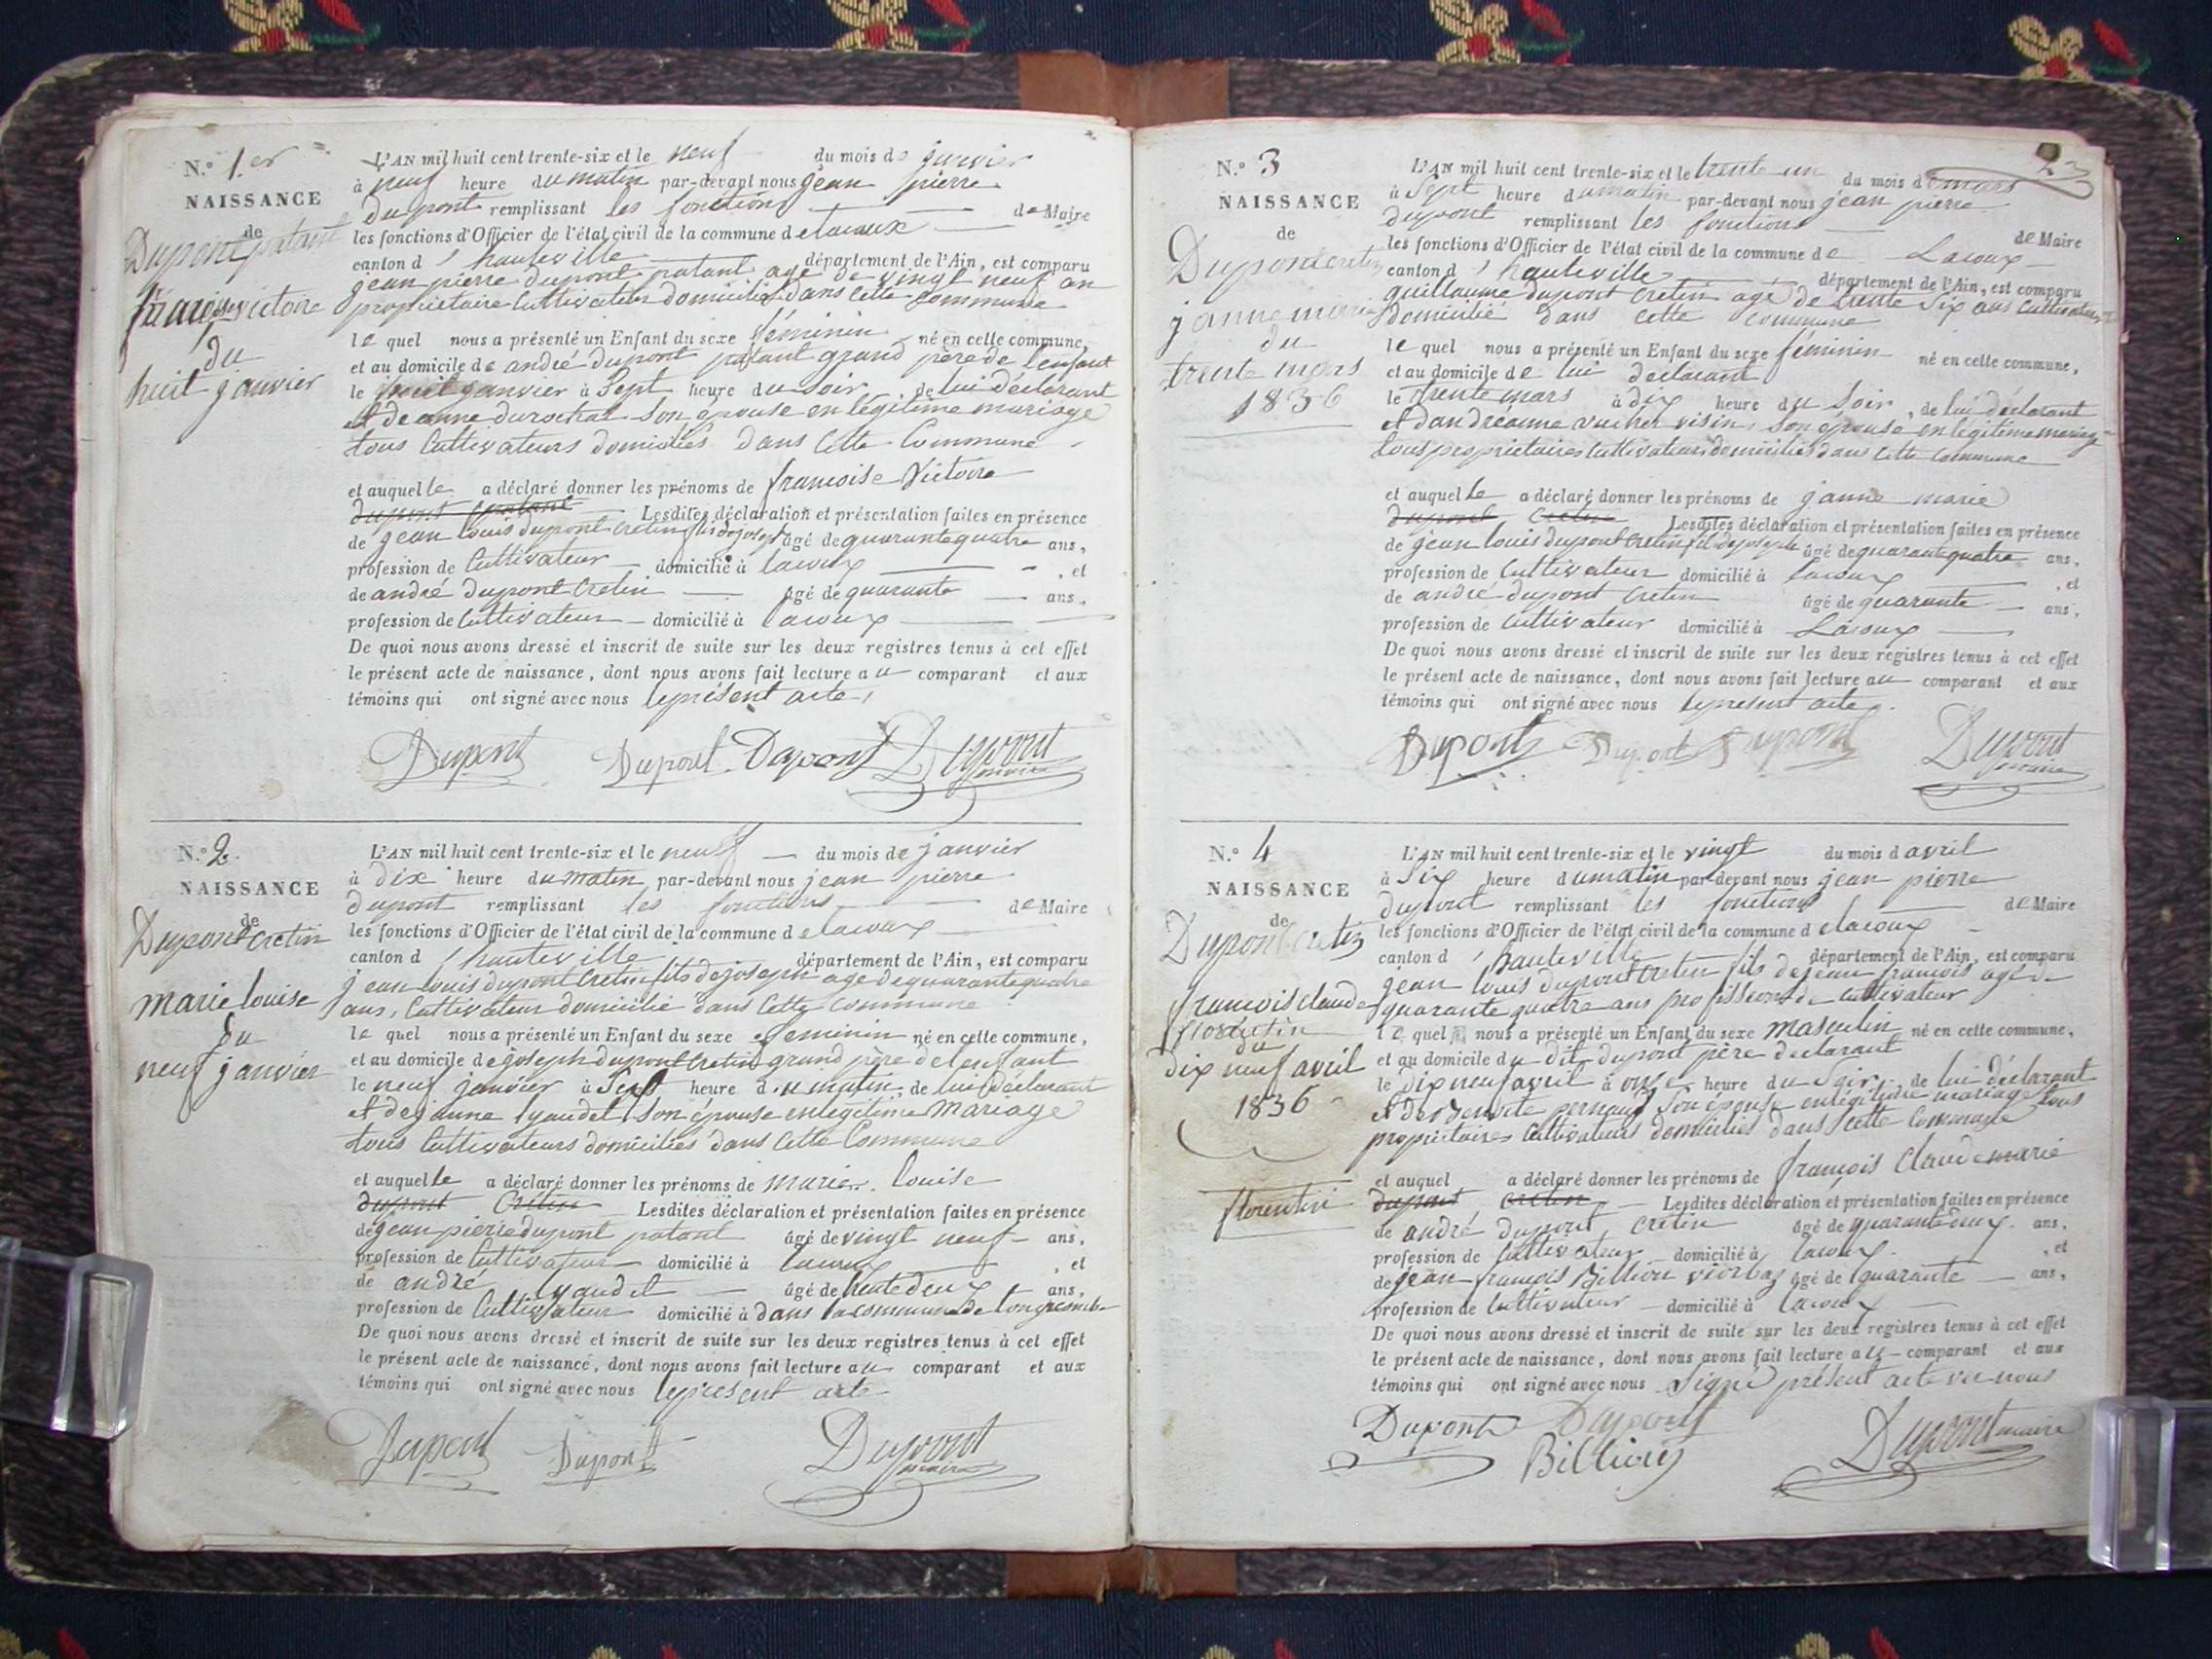 N.º 1.er
NAISSANCE
de
Dupont patant
françoise victoire
du
huit janvier
L'AN mil huit cent trente-six et le neuf du mois de janvier
à neuf heure du matin par-devant nous jean pierre
dupont remplissant les fonctions de Maire
les fonctions d'Officier de l'état civil de la commune de lacoux
canton d'hauteville département de l'Ain, est comparu
jean pierre dupont patant agé de vingt neuf an
proprietaire Cultivateur domicilié dans cette commune
le quel nous a présenté un Enfant du sexe féminin né en cette commune,
et au domicile de andré dupont patant grand père de l'enfant
le huit janvier à Sept heure du soir, de lui déclarant
et de anne durochat son épouse en légitime mariage
tous Cultivateurs domiciliés dans cette Commune
et auquel le a déclaré donner les prénoms de francoise Victoire
dupont patant Lesdites déclaration et présentation faites en présence
de jean louis dupont cretin fils de joseph âgé de quarante quatre ans,
profession de Cultivateur domicilié à lacoux , et
de andré dupont Cretin âgé de quarante ans,
profession de Cultivateur domicilié à lacoux
De quoi nous avons dressé et inscrit de suite sur les deux registres tenus à cet effet
le présent acte de naissance, dont nous avons fait lecture au comparant et aux
témoins qui ont signé avec nous le présent acte,
Dupont Dupont Dupont Dupont maire
N.º 2.
NAISSANCE
de
Dupont cretin
marie louise
du
neuf janvier
L'AN mil huit cent trente-six et le neuf du mois de janvier
à dix heure du matin par-devant nous jean pierre
dupont remplissant les fonctions de Maire
les fonctions d'Officier de l'état civil de la commune de lacoux
canton d'hauteville département de l'Ain, est comparu
jean louis dupont Cretin fils de joseph age de quarante quatre
ans, Cultivateur domicilié dans cette commune
le quel nous a présenté un Enfant du sexe feminin né en cette commune,
et au domicile de joseph dupont Cretin grand père de l'enfant
le neuf janvier à Sept heure du matin, de lui déclarant
et de janne son épouse en legitime mariage
tous Cultivateurs domiciliés dans cette Commune
et auquel le a déclaré donner les prénoms de marie louise
dupont Crétin Lesdites déclaration et présentation faites en présence
de jean pierre dupont patant âgé de vingt neuf ans,
profession de Cultivateur domicilié à lacoux , et
de andré âgé de trente deux ans,
profession de Cultivateur domicilié à dans la commune de
De quoi nous avons dressé et inscrit de suite sur les deux registres tenus à cet effet
le présent acte de naissance, dont nous avons fait lecture au comparant et aux
témoins qui ont signé avec nous le present acte
Dupont Dupont Dupont maire
2
N.º 3
NAISSANCE
de
Dupont cretin
janne marie
du
trente mars
1836
L'AN mil huit cent trente-six et le trente un du mois de mars
à Sept heure du matin par-devant nous jean pierre
dupont remplissant les fonctions de Maire
les fonctions d'Officier de l'état civil de la commune de Lacoux
canton d'hauteville département de l'Ain, est comparu
guillaume dupont Cretin agé de trente Six ans Cultivateur
domicilié dans cette commune
le quel nous a présenté un Enfant du sexe féminin né en cette commune,
et au domicile de lui declarant
le trente mars à dix heure du Soir, de lui déclarant
et d'andréanne vucher visin, son épouse en légitime mariage
tous proprietaires Cultivateurs domiciliés dans cette Commune
et auquel le a déclaré donner les prénoms de janne marie
dupont Cretin Lesdites déclaration et présentation faites en présence
de jean louis dupont Cretin fils de joseph âgé de quarante quatre ans,
profession de Cultivateur domicilié à lacoux , et
de andré dupont Cretin âgé de quarante ans,
profession de Cultivateur domicilié à Lacoux
De quoi nous avons dressé et inscrit de suite sur les deux registres tenus à cet effet
le présent acte de naissance, dont nous avons fait lecture au comparant et aux
témoins qui ont signé avec nous le present acte.
Dupont Dupont Dupont Dupont maire
N.º 4
NAISSANCE
de
Dupont cretin
françois claude
florentin
du
dix neuf avril
1836
florentin
L'AN mil huit cent trente-six et le vingt du mois d avril
à Six heure du matin par-devant nous jean pierre
dupont remplissant les fonctions de Maire
les fonctions d'Officier de l'état civil de la commune de lacoux
canton d'hauteville département de l'Ain, est comparu
jean louis dupont Cretin fils de jean francois agé de
quarante quatre ans profission de Cultivateur
le quel nous a présenté un Enfant du sexe masculin né en cette commune,
et au domicile du dit dupont père declarant
le dix neuf avril à onze heure du Soir, de lui déclarant
et de pernaud son épouse en légitime mariage tous
propriétaires Cultivateurs domiciliés dans cette Commune
et auquel a déclaré donner les prénoms de françois Claude marie
dupont cretin Lesdites déclaration et présentation faites en présence
de andré dupont Cretin âgé de quarante deux ans,
profession de Cultivateur domicilié à lacoux , et
de jean françois Billion âgé de quarante ans,
profession de Cultivateur domicilié à lacoux
De quoi nous avons dressé et inscrit de suite sur les deux registres tenus à cet effet
le présent acte de naissance, dont nous avons fait lecture au comparant et aux
témoins qui ont signé avec nous Signé présent acte nous
Dupont Dupont Dupont maire
Billion